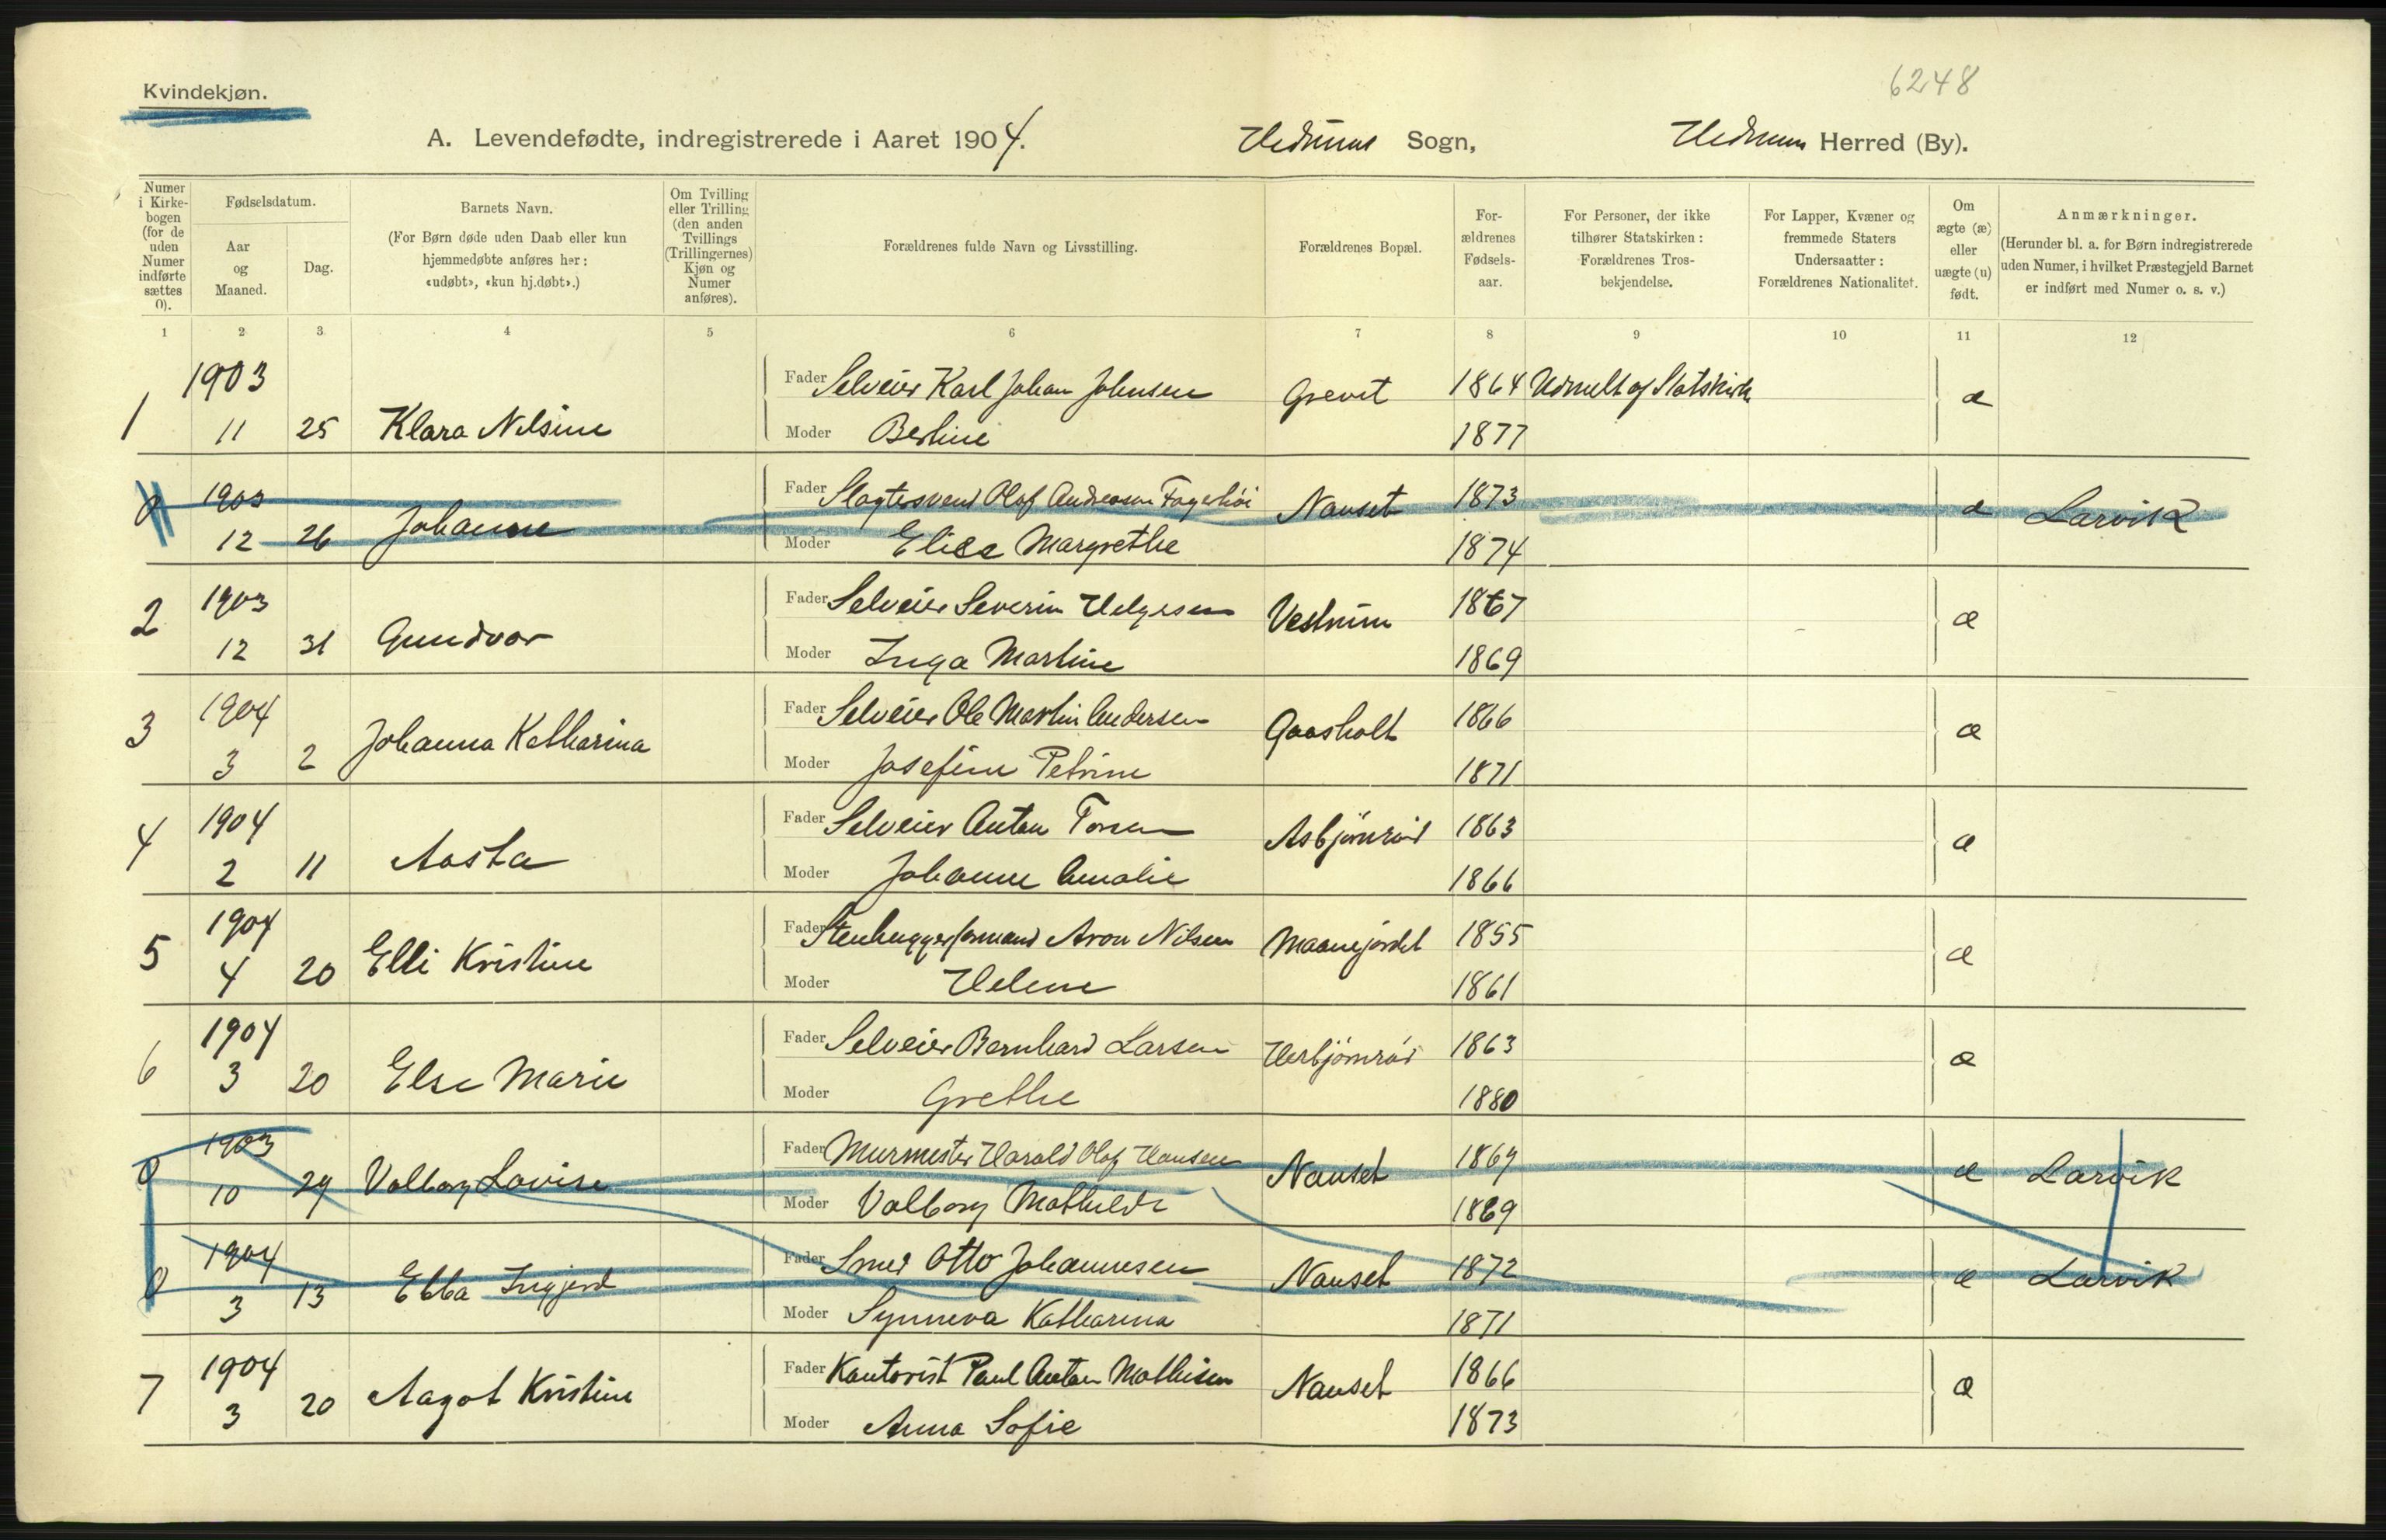 6248
Kvindekjøn.
A. Levendefødte, indregistrerede i Aaret 1904. Hedrum Sogn, Hedrum Herred (By).
Numer i Kirkebogen (for de uden Numer indførte sættes 0).
Fødselsdatum.
Aar og Maaned.
Dag.
Barnets Navn.
(For Børn døde uden Daab eller kun hjemmedøbte anføres her: «udøbt», «kun hj.døbt».)
Om Tvilling eller Trilling (den anden Tvillings (Trillingernes) Kjøn og Numer anføres).
Forældrenes fulde Navn og Livsstilling.
Forældrenes Bopæl.
Forældrenes Fødselsaar.
For Personer, der ikke tilhører Statskirken: Forældrenes Trosbekjendelse.
For Lapper, Kvæner og fremmede Staters Undersaatter: Forældrenes Nationalitet.
Om ægte (æ) eller uægte (u) født.
Anmærkninger.
(Herunder bl. a. for Børn indregistrerede uden Numer, i hvilket Præstegjeld Barnet er indført med Numer o. s. v.)
1 2 3 4 5 6 7 8 9 10 11 12
1 1903 Fader Selveier Karl Johan Johnsen Grevet 1864 Udmeldt af Statskirk æ
11 25 Klara Nilsine Moder Bertine 1877
0 1903 Fader Slagtersvend Olaf Andreasen Fagerhöi Nanset 1873 æ Larvik
12 26 Johanne Moder Elise Margrethe 1874
2 1903 Fader Selveier Severin Helgesen Vestrum 1867 æ
12 31 Gundvor Moder Inga Martine 1869
3 1904 Fader Selveier Ole Martin Andersen Gaasholt 1866 æ
3 2 Johanna Katharina Moder Josefine Petrine 1871
4 1904 Fader Selveier Anton Torsen Asbjörnröd 1863 æ
2 11 Aasta Moder Johanne Amalie 1866
5 1904 Fader Stenhuggerformand Aron Nilsen Maanejordet 1855 æ
4 20 Elli Kristine Moder Helene 1861
6 1904 Fader Selveier Bernhard Larsen Herbjörnröd 1863 æ
3 20 Else Marie Moder Grethe 1880
0 1903 Fader Murmester Harald Olaf Hansen Nanset 1869 æ Larvik
10 29 Valborg Lovise Moder Valborg Mathilde 1869
0 1904 Fader Smed Otto Johannesen Nanset 1872 æ Larvik
3 13 Ebba Ingjerd Moder Synneva Katharina 1871
7 1904 Fader Kontorist Paul Anton Mathisen Nanset 1866 æ
3 20 Aagot Kristine Moder Anna Sofie 1873